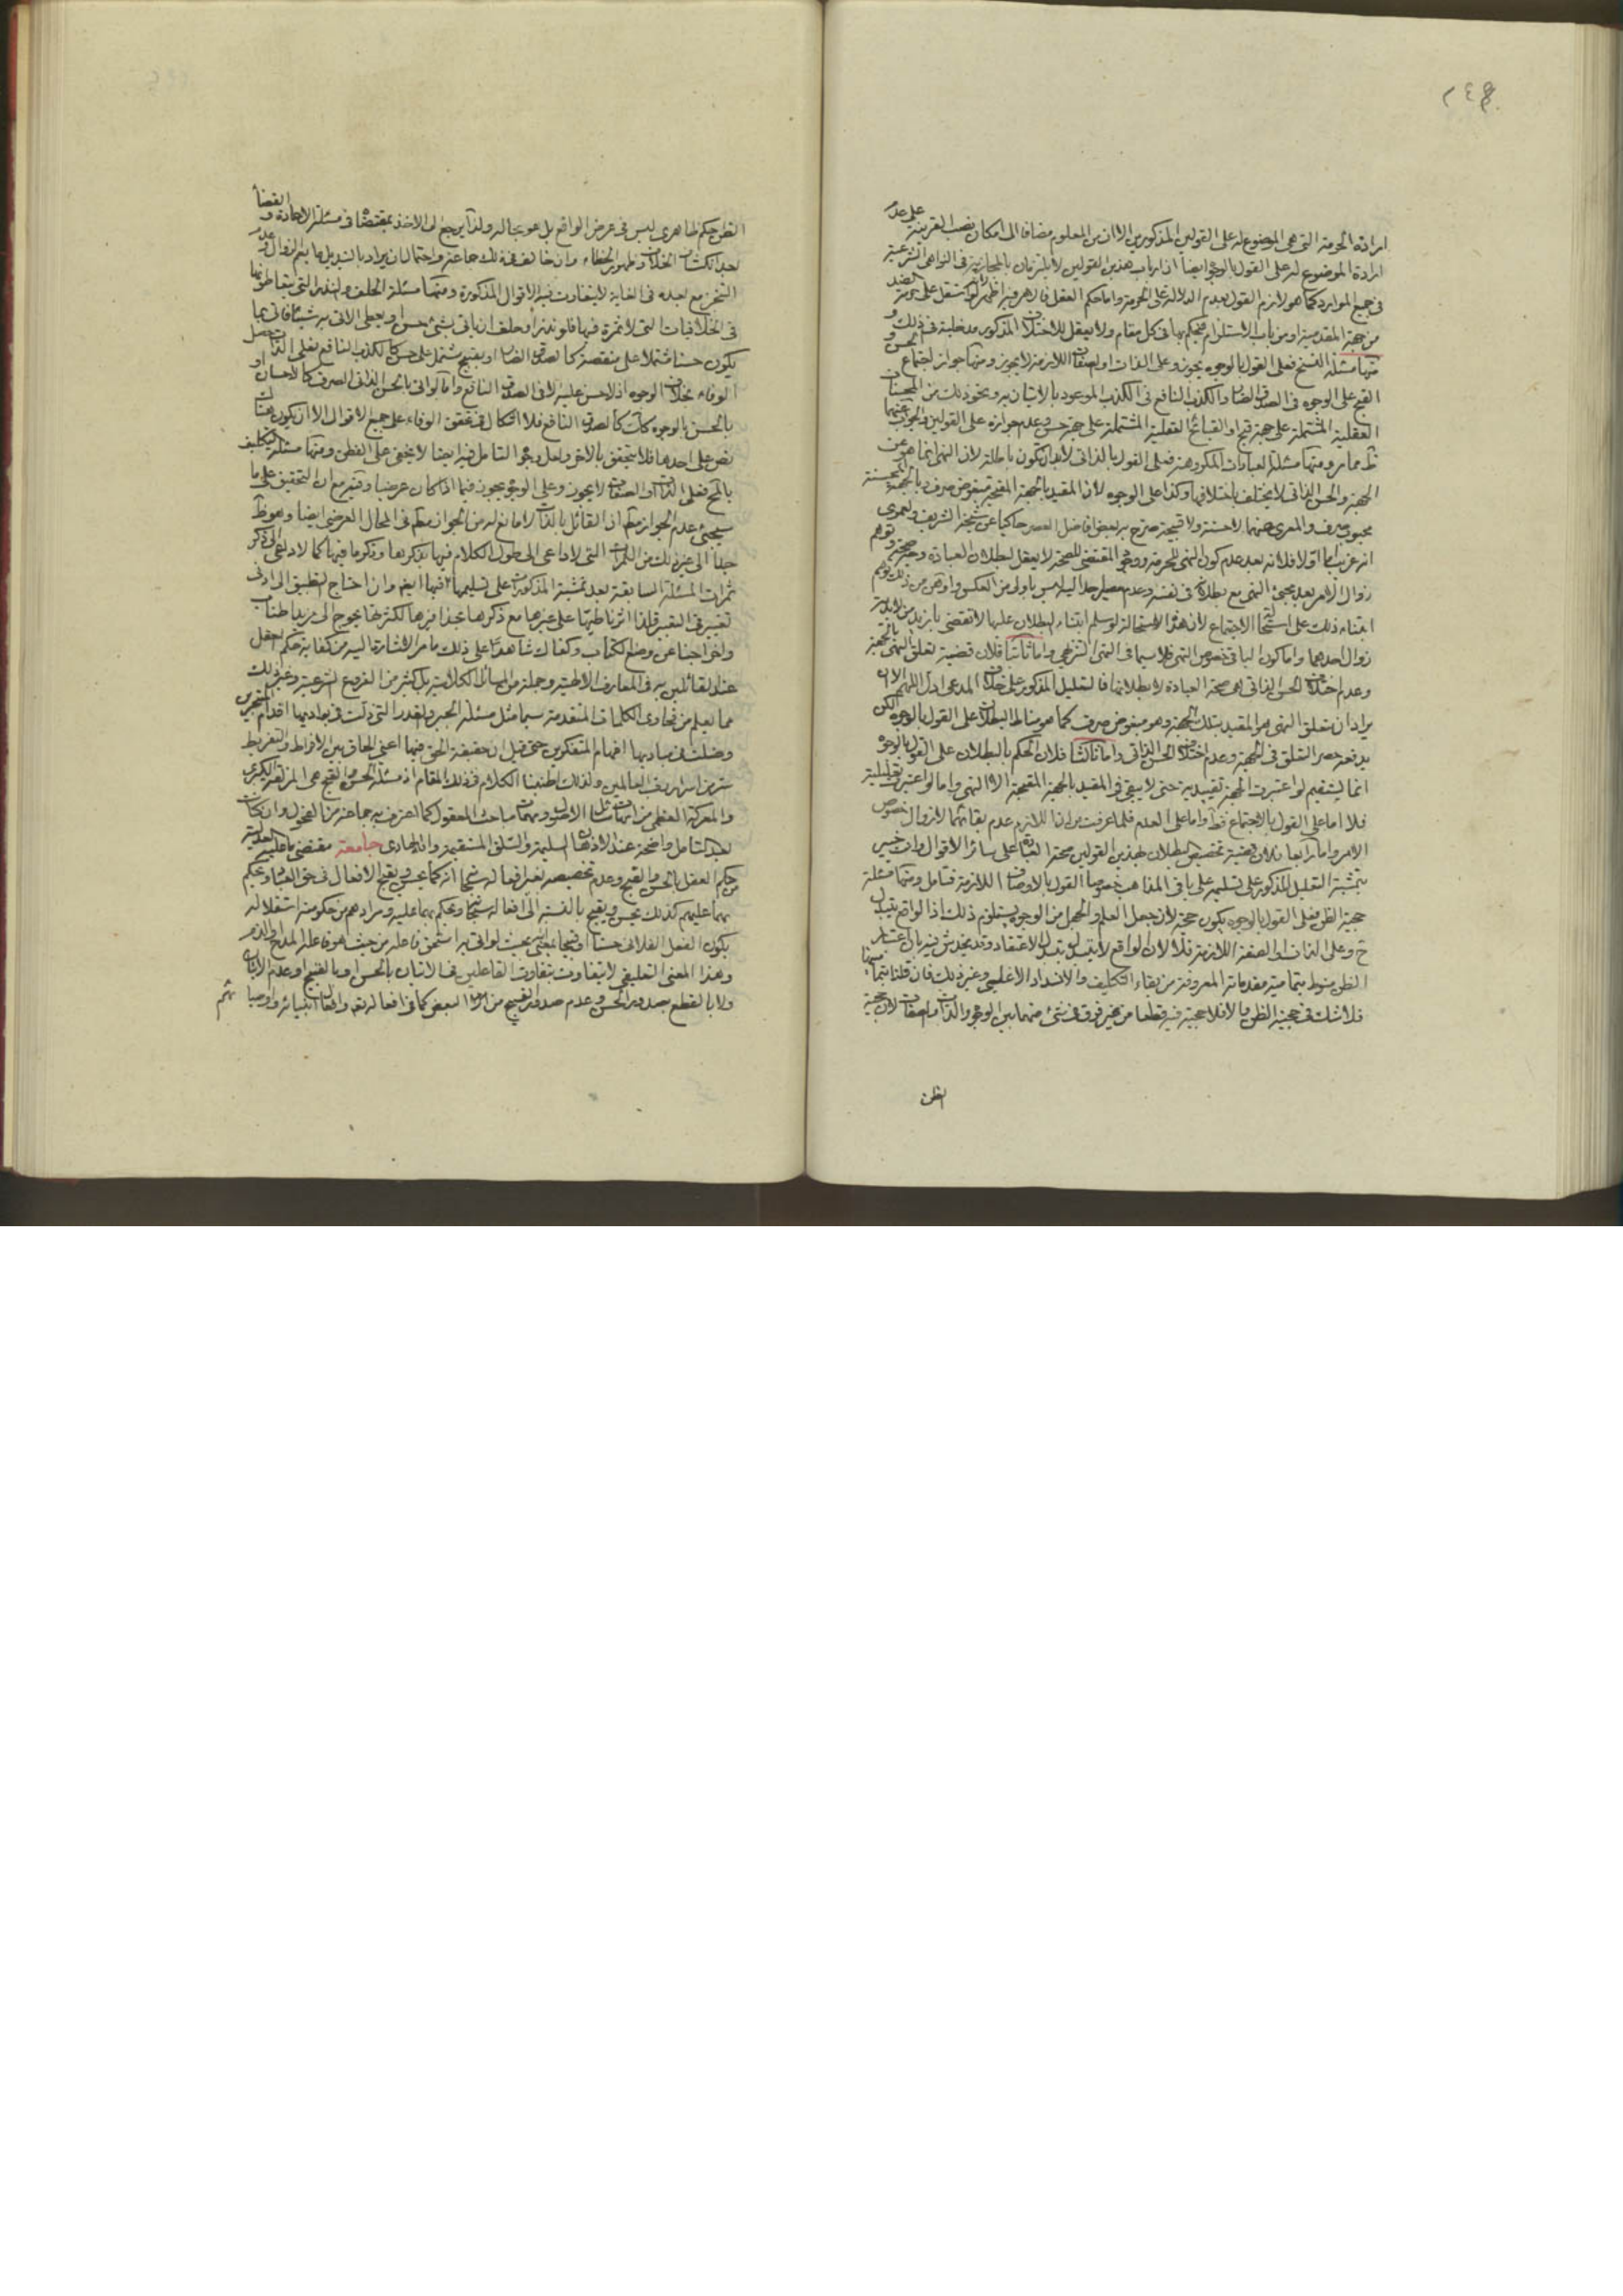 ارادة الحرمة التى هى الموضوع له على القولين المذكورين الا ان من المعلوم مضافا الى امكان نصب القرينة على عدم
ارادة الموضوع له على القول بالوجوه ايضا ان ارباب هذين القولين لا يلتزمان بالمجازية فى النواهى الشرعية
فى جميع الموارد كما هو لازم القول بعدم الدلالة على الحرمة واما حكم العقل
من جهة المقدمية او من باب الاستلزام فيحكم بها فى كل مقام ولا يعقل للاختلاف المذكور مدخلية فى ذلك و
منها مسئلة النسخ فعلى القول بالوجوه يجوز وعلى الذات او الصفات اللازمة لا يجوز ومنها جواز اجتماع الحسن و
القبح على الوجوه فى الصدق الضار والكذب النافع فى الكذب الموعود بالاتيان به ونحو ذلك من المحسنات
العقلية المشتملة على جهة قبح او القبائح العقلية المشتملة على جهة حسن وعدم جوازه على القولين
ظ مما مر ومنها مسئلة العبادات المكروهة فعلى القول بالذاتى لا بد ان تكون باطلة لان النهى انما هو عن
الجهة والحسن الذاتى لا يختلف باختلافها وكذا على الوجوه لان المقيد بالجهة المقبحة مبغوض صرف وبالجهة المحسنة
محبوب صرف والمعرى عنهما لا حسنة ولا قبيحة صرح به بعض افاضل العصر حاكيا عن شيخه الشريف ولعمرى
انه غريب اما اولا فلانه بعد عدم كون النهى للحرمة ووجود المقتضى للصحة لا يعقل لبطلان العبادة وجه صحة وتوهم
زوال الامر بعد مجئ النهى مع بطلانه فى نفسه وعدم مصير احد اليه ليس باولى من العكس واوهن من ذلك توهم
ابتناء ذلك على استحالة الاجتماع لان هذه الاستحالة لو سلم ابتناء البطلان عليها لا تقتضى بازيد من لابدية
زوال احدهما واما كون الباقى خصوص النهى فلا سيما فى النهى التنزيهى واما ثانيا فلان قضية تعلق النهى بالجهة
وعدم اختلاف الحسن الذاتى هى صحة العبادة لا بطلانها فالتعليل المذكور على خلاف المدعى ادل اللهم الا ان
يراد ان متعلق النهى هو المقيد بتلك الجهة وهو مبغوض صرف كما هو مناط البطلان على القول بالوجوه لكن
يدفعه حصر التعلق فى الجهة وعدم اختلاف الحسن الذاتى واما ثالثا فلان الحكم بالبطلان على القول بالوجوه
انما يستقيم لو اعتبرت الجهة تقييدية حتى لا يبقى فى المقيد بالجهة المقبحة الا النهى واما لو اعتبرت تعليلية
فلا اما على القول بالاجتماع فظ واما على العدم فلما عرفت من ان اللازم عدم بقائهما لا زوال خصوص
الامر واما رابعا فلان قضية تخصيص البطلان بهذين القولين صحة العبادة على سائر الاقوال وانت خبير
بتمشية التعليل المذكور على تسليمه على باقى المذاهب خصوصا القول بالاوصاف اللازمة فتامل ومنها مسئلة
حجية الظن فعلى القول بالوجوه يكون حجة لان جعل العلم والجهل من الوجوه يستلزم ذلك اذ الواقع يتبدل
ح وعلى الذات او الصفة اللازمة فلا لان الواقع لا يتبدل بتبدل الاعتقاد وقد يخدش فيه بان اعتبار
الظن منوط بتمامية مقدماته المعروفة من بقاء التكليف والانسداد الاغلبى وغير ذلك فان قلنا بتماميتها
فلا شك فى حجية الظن والا فلا حجية فيه قطعا من غير فرق فى شئ منهما بين الوجوه والذات والصفات لان حجية
الظن
الظن حكم ظاهرى ليس فى عرض الواقع بل هو بحاله ولذا يرجع الى الاخذ بمقتضاه فى مسئلة الاعادة والقضاء
بعد انكشاف الخلاف وظهور الخطاء وان خالف فى ذلك جماعة واحتمال ان يراد بالتبديل ما يعم الزوال وعدم
التنجز مع بعده فى الغاية لا يتفاوت فيه الاقوال المذكورة ومنها مسئلة الحلف والنذر التى يتعاطونها
فى الخلافيات التى لا ثمرة فيها فلو نذر او حلف ان ياتى بشئ حسن او يعطى الاتى به شيئا فاتى بما
يكون حسنا مشتملا على منقصة كالصدق الضار او بقبيح مشتمل على حسن كالكذب النافع فعلى الذات يحصل
الوفاء بخلاف الوجوه اذ لا حسن عليه الا فى الصدق النافع واما لو اتى بالحسن الذاتى الصرف كالاحسان او
بالحسن بالوجوه كك كالصدق النافع فلا اشكال فى تحقق الوفاء على جميع الاقوال الا ان يكون هناك
نص على احدها فلا يتحقق بالاخر ولعل وجه التامل فيه ايضا لا يخفى على الفطن ومنها مسئلة التكليف
بالمح فعلى الذات او الصفات لا يجوز وعلى الوجوه يجوز فيما اذا كان عرضيا وفيه مع ان التحقيق على ما
سيجئ عدم الجواز مطلقا ان القائل بالذات لا مانع له من الجواز مطلقا فى المحال العرضى ايضا وهو ظ
جدا الى غير ذلك من الثمرات التى لا داعى الى طول الكلام فيها بذكرها وذكر ما فيها كما لا داعى الى ذكر
ثمرات المسئلة السابقة بعد تمشية المذكورات على تسليمها فيها ايضا وان احتاج التطبيق الى ادنى
تغيير فى التعبير فلذا اثرنا طيها على غيرها مع ذكرها بحذافيرها لكثرتها يحوج الى مزيد اطناب
واخراجنا عن وضع الكتاب وكفاك شاهدا على ذلك ما مر الاشارة اليه من كفاية حكم العقل
عند القائلين به فى المعارف الالهية وجملة من المسائل الكلامية بل كثير من الفروع الشرعية وغير ذلك
مما يعلم من فحاوى الكلمات المتقدمة سيما مثل مسئلة الجبر والقدر التى زلت فى بواديها اقدام المتبحرين
وضلت فى مباديها افهام المتفكرين حتى قيل ان حقيقة الحق فيها اعنى الحاق بين الافراط والتفريط
سر من اسرار رب العالمين ولذلك اطنبنا الكلام فى ذلك المقام اذ مسئلة الحسن والقبح هى المزلقة الكبرى
والمعركة العظمى من امهات مسائل الاصول ومهمات مباحث المعقول كما اعترف به جماعة من الفحول وان كانت
بعد التامل واضحة عند الاذهان السليمة والسلق المستقيمة والله الهادى خاتمة مقتضى ما عليه العدلية
من حكم العقل بالحسن والقبح وعدم تخصيصه بغير افعاله سبحانه انه كما يحسن ويقبح الافعال فى حق العباد ويحكم
بهما عليهم كذلك يحسن ويقبح بالنسبة الى افعاله سبحانه ويحكم بهما عليه ومرادهم من حكومته استقلاله
بكون الفعل الفلانى حسنا او قبيحا بمعنى انه بحيث لو اتى به استحق فاعله من حيث هو فاعله المدح او الذم
وهذا المعنى التعليقى لا يتفاوت بتفاوت الفاعلين فى الاتيان بالحسن او بالقبيح او عدم الاتيان
ولا بالقطع بصدور الحسن وعدم صدور القبيح من البعض كما فى افعاله تعالى وافعال انبيائه واوصيائهم